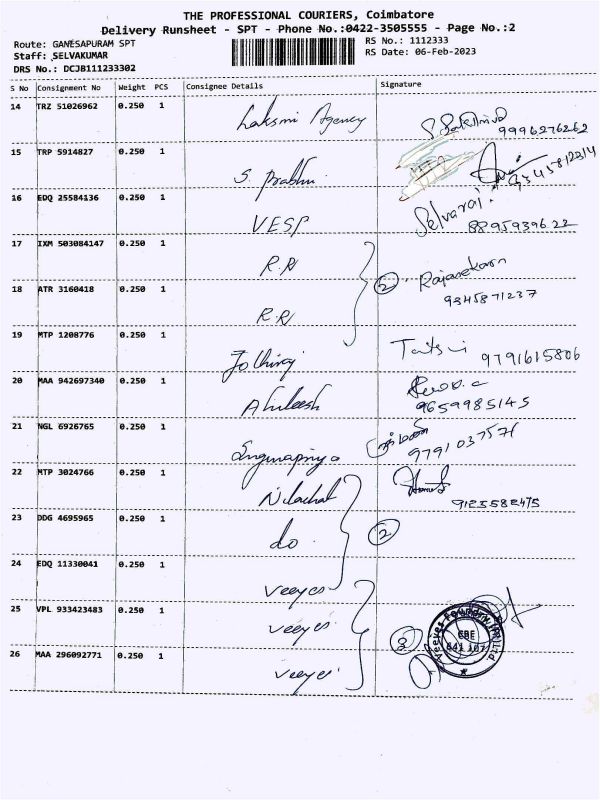 THE PROFESSIONAL COURIERS, Coimbatore
Delivery Runsheet - SPT - Phone No.:0422-3505555 - Page No.:2
Route: GANESAPURAM SPT
RS No.: 1112333
Staff: SELVAKUMAR
RS Date: 06-Feb-2023
DRS No.: DCJB111233302
S No Consignment No Weight PCS Consignee Details Signature
14 TRZ 51026962 0.250 1 Laksmi Agency 9996276262
15 TRP 5914827 0.250 1 S. Prabhu 9345812314
16 EDQ 25584136 0.250 1 VESP Selvaraj 8895939622
17 IXM 503084147 0.250 1 R.R
2 Rajasekaran
18 ATR 3160418 0.250 1 R.R 9345871237
19 MTP 1208776 0.250 1 Jothiraj 9791615806
20 MAA 942697340 0.250 1 9659985145
21 NGL 6926765 0.250 1 9791037571
22 MTP 3024766 0.250 1 Nilachal 9125582475
23 DDG 4695965 0.250 1 do. 2
24 EDQ 11330041 0.250 1 Veeyes
25 VPL 933423483 0.250 1 Veeyes
3
Veeyes Foundry (P) Ltd.
CBE
641 107
26 MAA 296092771 0.250 1 Veeyes